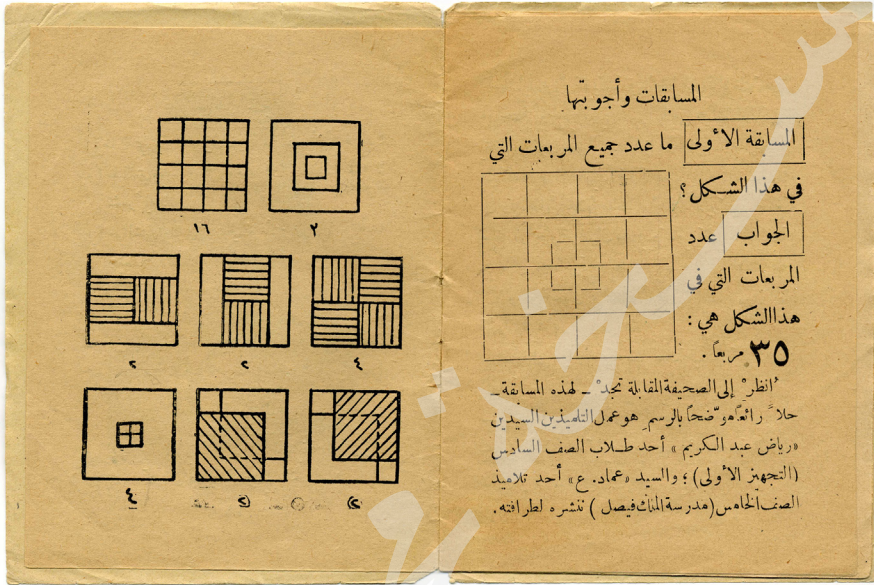 المسابقات وأجوبتها
المسابقة الأولى ما عدد جميع المربعات التي
في هذا الشكل؟
الجواب عدد
المربعات التي في
هذا الشكل هي :
٣٥ مربعاً .
أنظر إلى الصحيفة المقابلة تجد ـ لهذه المسابقة ـ
حلاً رائعاً موضحاً بالرسم هو عمل التلميذين السيدين
«رياض عبد الكريم» أحد طلاب الصف السادس
(التجهيز الأولى) ؛ والسيد «عماد. ع» أحد تلاميذ
الصف الخامس (مدرسة الملك فيصل) ننشره لطرافته .
٢ ١٦
٤ ٢ ٢
(٢) (٢) ٤